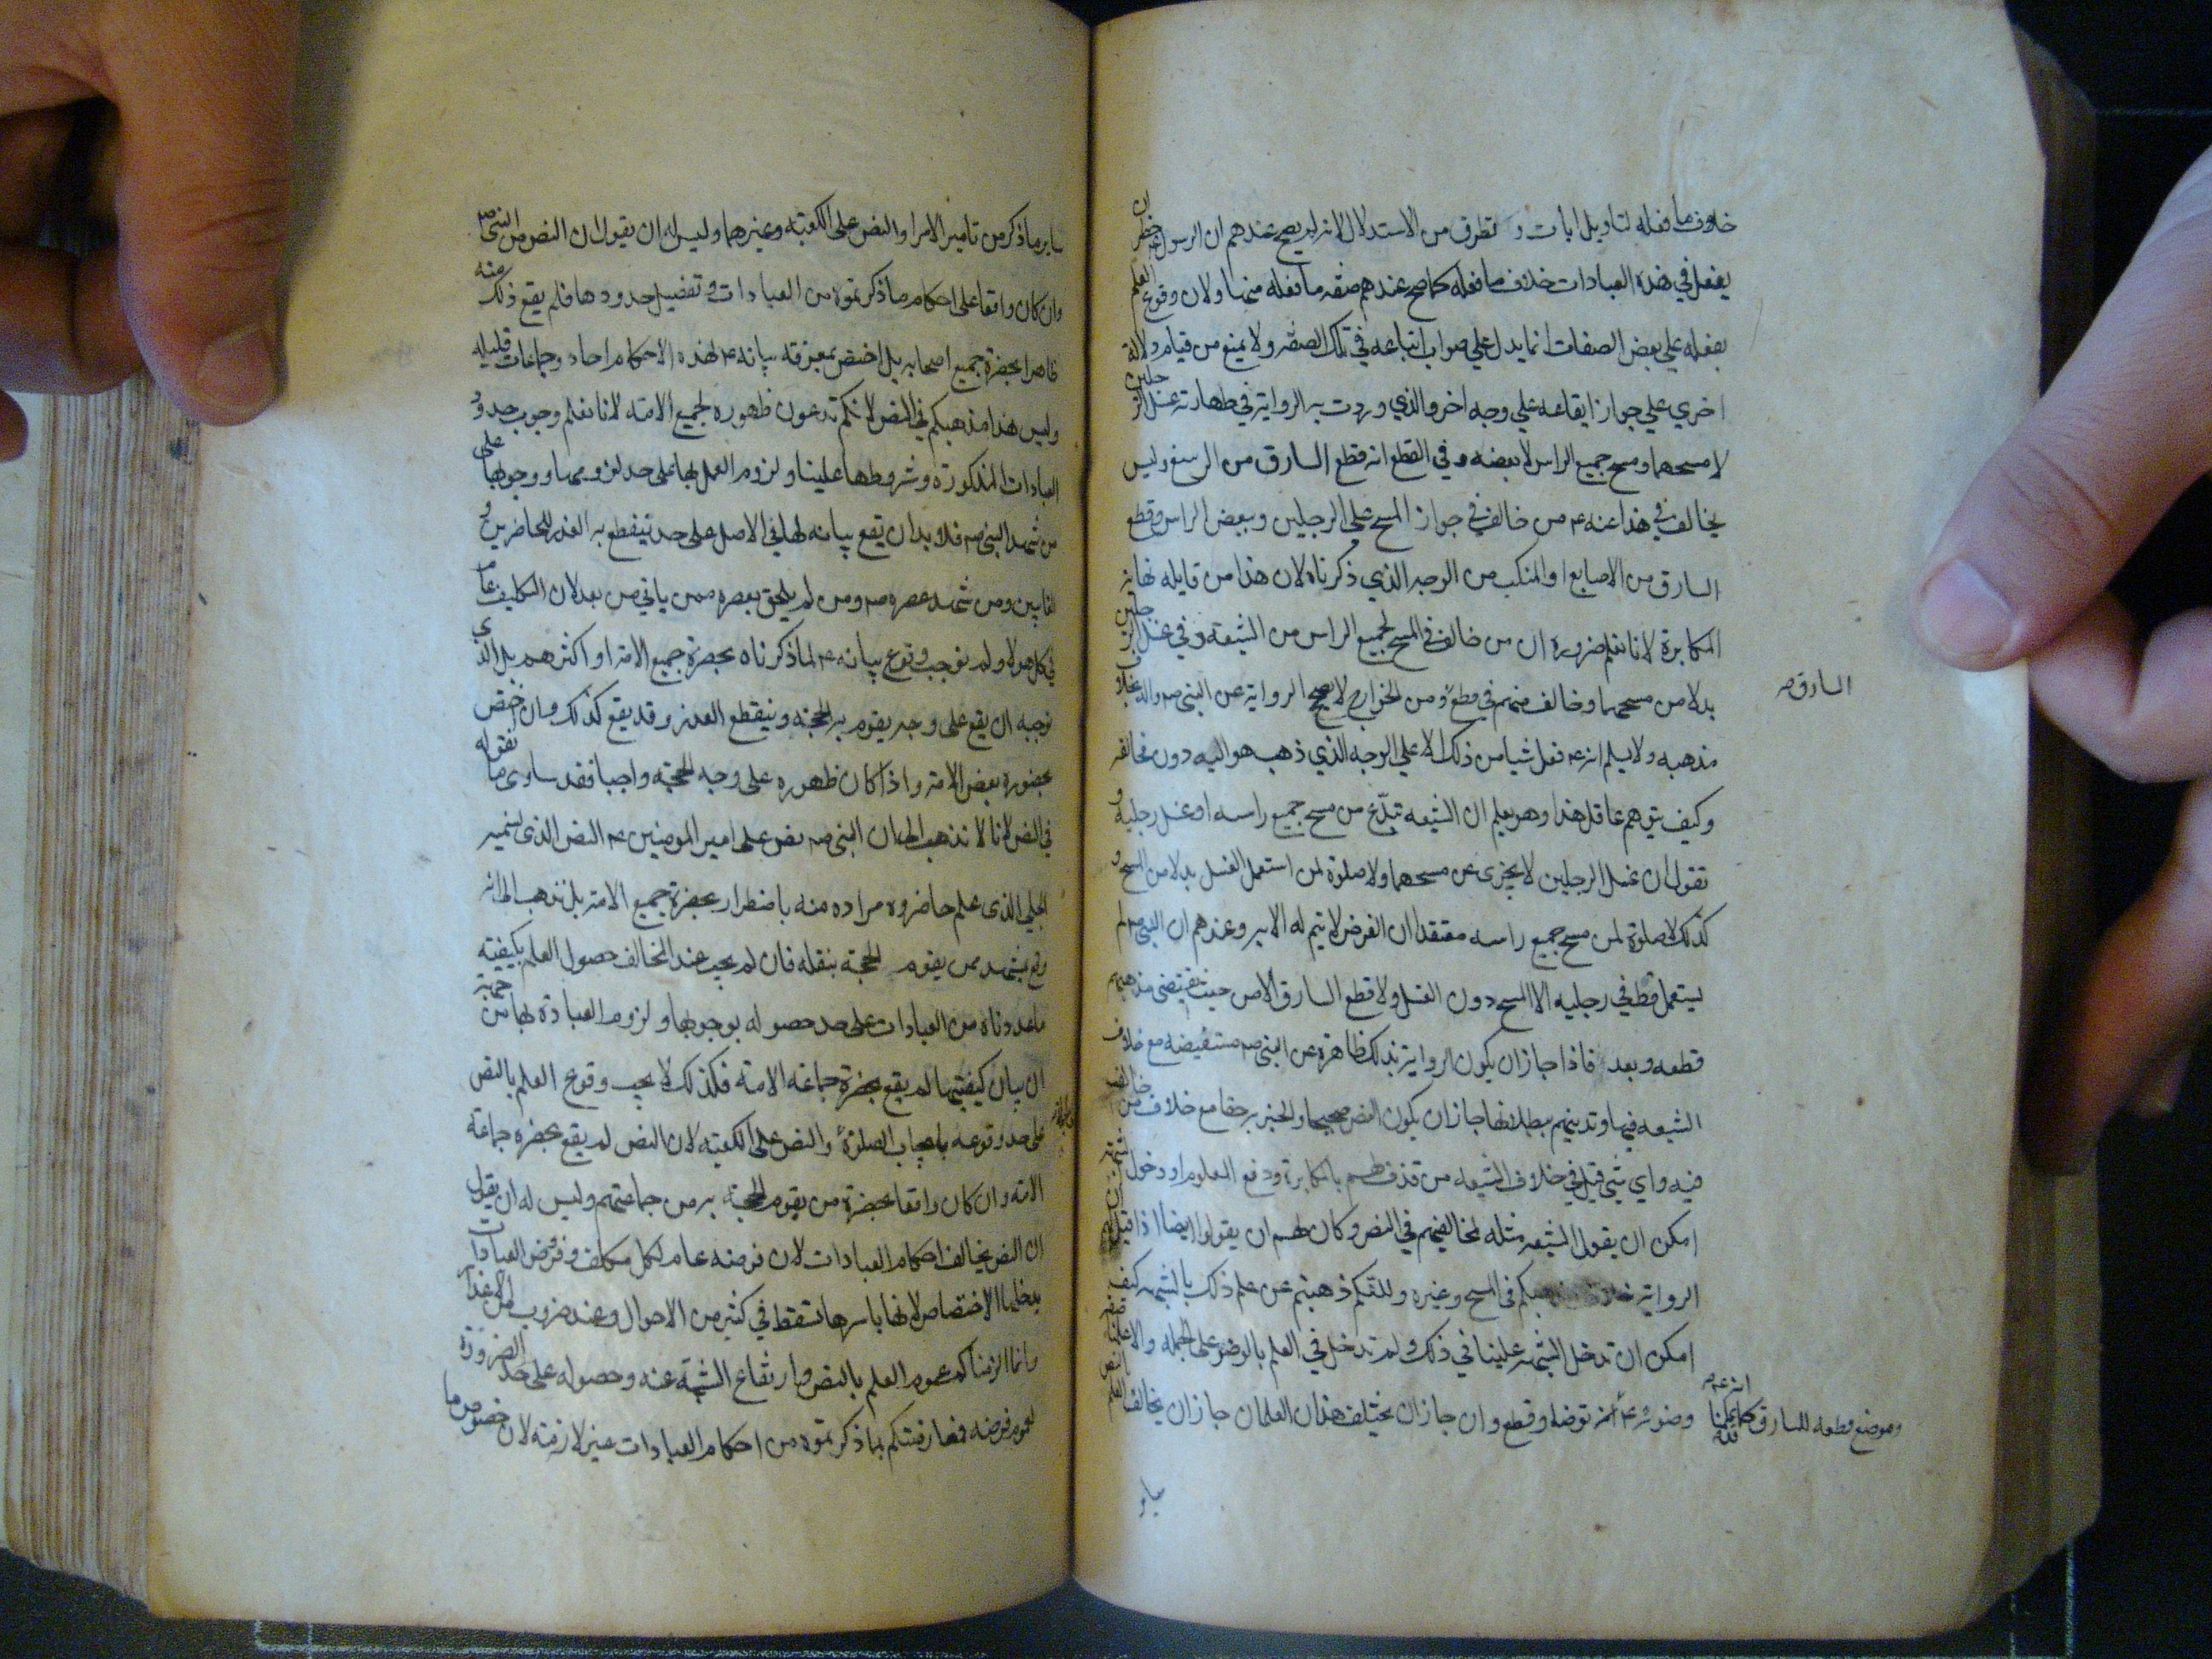 خلاف ما فعله لتاويل ايات وتطرق من الاستدلال لانه لم يصح عندهم ان الرسول عم حظر ان
يفعل في هذه العبادات خلاف ما فعله كما صح عندهم صفة ما فعله منها ولان وقوع العلم
بفعله علي بعض الصفات انما يدل علي صواب اتباعه في تلك الصفة ولا يمنع من قيام دلالة
اخري علي جواز ايقاعه علي وجه اخر والذي وردت به الرواية في طهارته غسل الرجلين
لا مسحهما ومسح جميع الراس لا بعضه وفي القطع انه قطع السارق من الرسغ وليس
يخالف في هذا عنه ع من خالف في جواز المسح علي الرجلين وببعض الراس وقطع
السارق من الاصابع او المنكب من الوجه الذي ذكرناه لان هذا من قايله نهاية
المكابرة لانا نعلم ضرورة ان من خالف في المسح لجميع الراس من الشيعة وفي غسل الرجلين
بدلا من مسحهما وخالف منهم في قطع ومن الخوارج لا يصحح الرواية عن النبي ص والد بخلاف
السارق ص
مذهبه ولا يسلم انه ع فعل شيا من ذلك الا علي الوجه الذي ذهب هو اليه دون مخالفه
وكيف يتوهم عاقل هذا وهو يعلم ان الشيعه تبدع من مسح جميع راسه او غسل رجليه و
تقول ان غسل الرجلين لا يجزى عن مسحهما ولا صلوة لمن استعمل الغسل بدلا من المسح و
كذلك لا صلوة لمن مسح جميع راسه معتقدا ان الفرض لا يتم له الا به وعندهم ان النبي ص لم
يستعمل قط في رجليه الا المسح دون الغسل ولا قطع السارق الا من حيث يقتضى مذهبهم
قطعه وبعد فاذا جاز ان يكون الرواية بذلك ظاهرة عن النبي ص مستفيضه مع خلاف
الشيعه فيها وتدينهم ببطلانها جاز ان يكون النص صحيحا والخبر به حقا مع خلاف من خالف
فيه واي شي قيل في خلاف الشيعه من قذفهم بالمكابرة ودفع المعلوم او دخول شبهة
امكن ان يقول الشيعه مثله لمخالفيهم في النص وكان لهم ان يقولوا ايضا اذا قيل
الرواية بكم في المسح وغيره ولعلكم ذهبتم عن علم ذلك بالشبهه كيف
امكن ان تدخل الشبهه علينا في ذلك ولم تدخل في العلم بالوضوء على الجمله والا علمنا صفة
وموضع قطعه للسارق كما علمنا انه ع وضوئه ع انه توضا وقطع وان جاز ان يختلف هذان العلمان جاز ان يخالف العلم بالنص
ساير
ساير ما ذكر من تامير الامرا والنص على الكعبة وغيرهما وليس له ان يقول ان النص من النبي ص
وان كان واقعا على احكام ما ذكرتموه من العبادات وتفصيل حدودها فلم يقع ذلك منه
ظاهرا بحضرة جميع اصحابه بل اختص بمعرفة بيانه ع لهذه الاحكام احاد وجماعات قليله
وليس هذا مذهبكم في النص لانكم تدعون ظهوره لجميع الامة لانا نعلم وجوب حدود
العبادات المذكورة وشروطها علينا ولزوم العمل بها على حد لزومها ووجوبها على
من شهد النبي ص فلا بد ان يقع بيانه لها في الاصل على حد ينقطع به العذر للحاضرين و
الغايبين ومن شهد عصره ص ومن لم يلحق بعصره ممن ياتي من بعد لان التكليف عام
في كل هولا ولم نوجب وقوع بيانه ع لما ذكرناه بحضرة جميع الامة او اكثرهم بل الذي
نوجبه ان يقع على وجه يقوم به الحجة وينقطع العذر وقد يقع كذلك وان اختص
بحضوره بعض الامة واذا كان ظهوره على وجه الحجة واجبا فقد ساوى ما نقوله
في النص لانا لا نذهب الى ان النبي ص نص على امير المومنين ع النص الذى نسميه
الجلي الذى علم حاضروه مراده منه باضطرار بحضرة جميع الامة بل نذهب الى انه
وقع بشهد ممن يقوم الحجة بنقله فان لم يجب عند المخالف حصول العلم بكيفية
ما عددناه من العبادات على حد حصوله بوجوبها ولزوم العبادة بها من جهة
ان بيان كيفيتها لم يقع بحضرة جماعة الامة فكذلك لا يجب وقوع العلم بالنص
على حد وقوعه بايجاب الصلوة والنص على الكعبة لان النص لم يقع بحضرة جماعة
الامة وان كان واقعا بحضرة من يقوم الحجة به من جماعتهم وليس له ان يقول
ان النص يخالف احكام العبادات لان فرضه عام لكل مكلف وفروض العبادات
يدخلها الاختصاص لانها باسرها تسقط في كثير من الاحوال وعند ضروب من الاعذار
وانما الزمناكم عموم العلم بالنص وارتفاع الشبهة عنه وحصوله على حد الضرورة
لعموم فرضه فمعارضتكم بما ذكرتموه من احكام العبادات غير لازمة لان خصوص ما